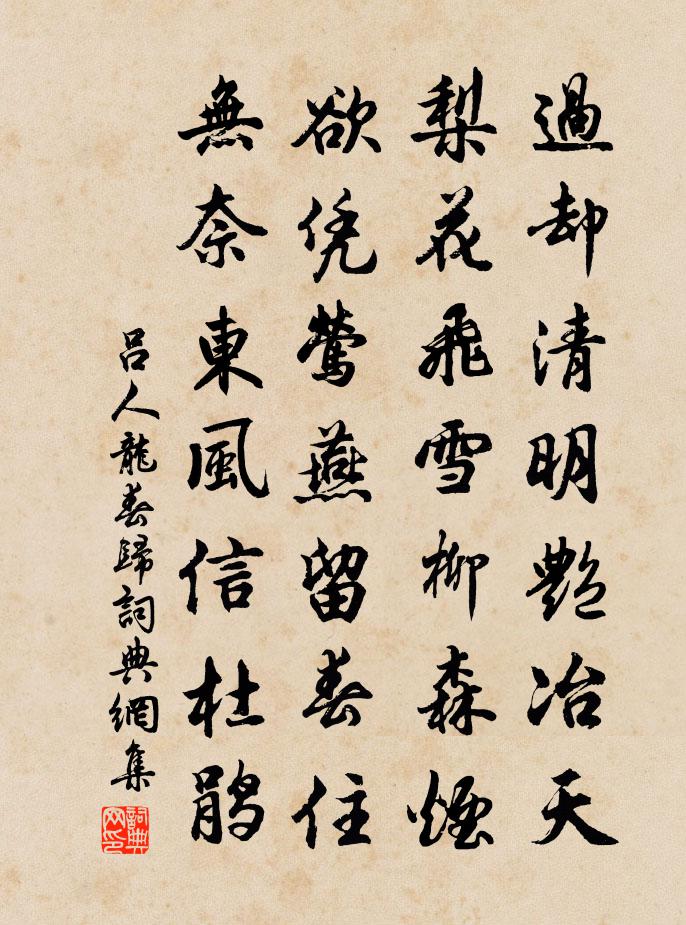 過却清明艷冶天
梨花飛雪柳森煙
欲凭鶯燕留春住
無奈東風信杜鵑
吕人龍春歸詞典網集
詞典网印